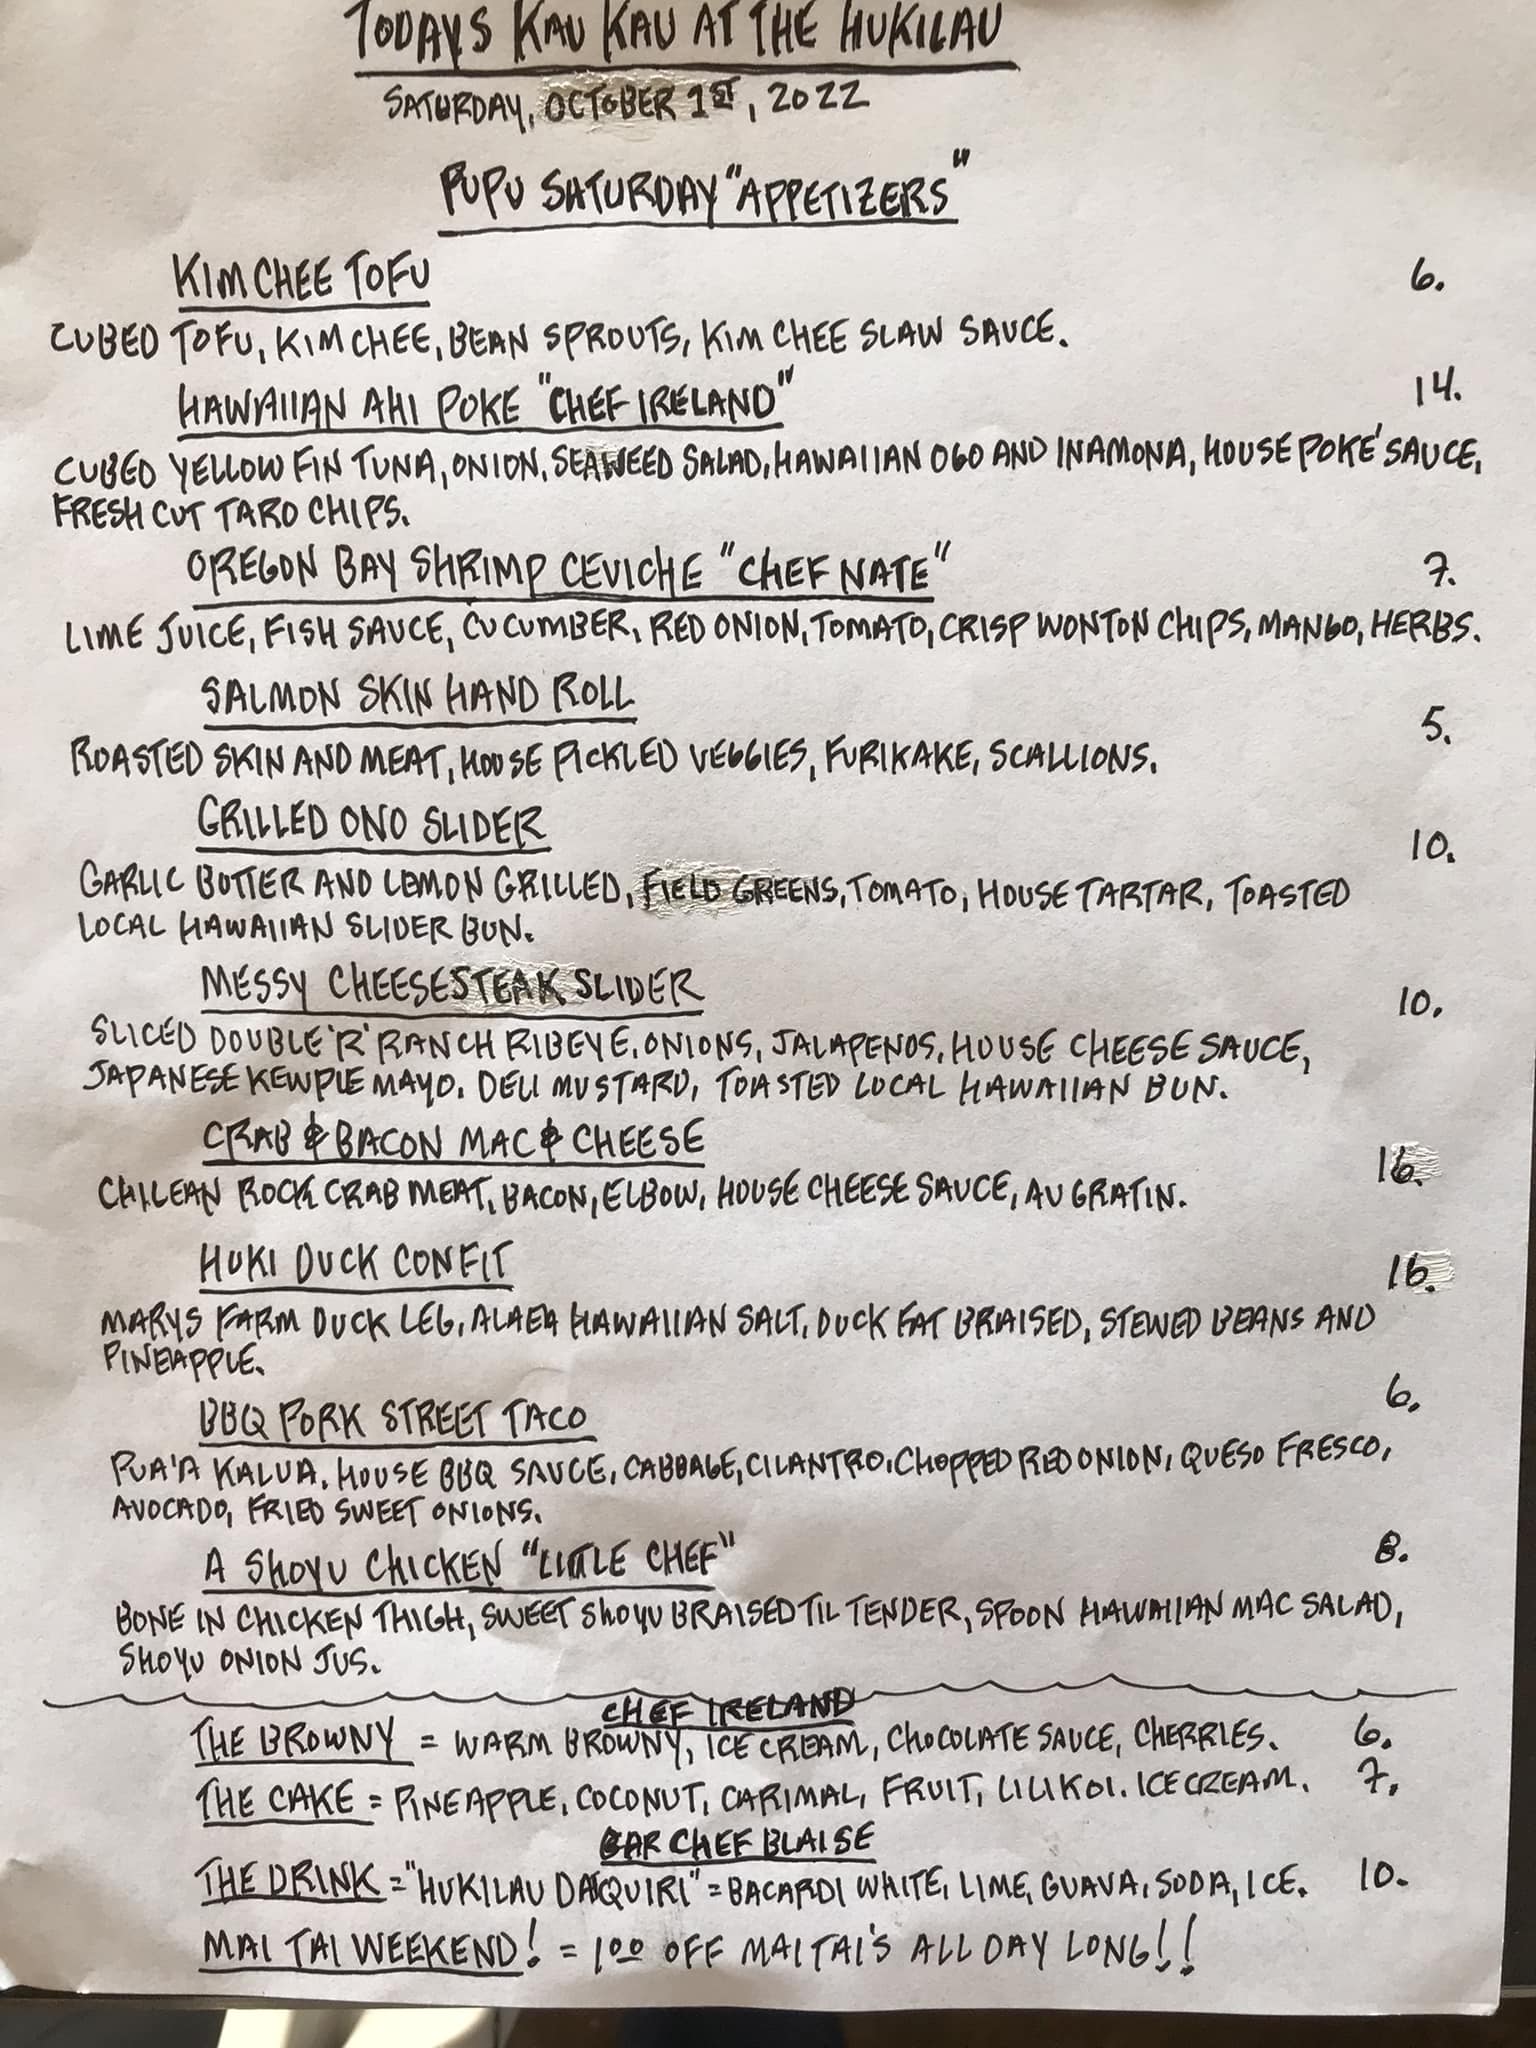 TODAYS KAU KAU AT THE HUKILAU
SATURDAY, OCTOBER 1ST, 2022
PUPU SATURDAY "APPETIZERS"
KIM CHEE TOFU 6.
CUBED TOFU, KIM CHEE, BEAN SPROUTS, KIM CHEE SLAW SAUCE.
HAWAIIAN AHI POKE "CHEF IRELAND" 14.
CUBED YELLOW FIN TUNA, ONION, SEAWEED SALAD, HAWAIIAN OGO AND INAMONA, HOUSE POKE' SAUCE,
FRESH CUT TARO CHIPS.
OREGON BAY SHRIMP CEVICHE "CHEF NATE" 7.
LIME JUICE, FISH SAUCE, CUCUMBER, RED ONION, TOMATO, CRISP WONTON CHIPS, MANGO, HERBS.
SALMON SKIN HAND ROLL 5.
ROASTED SKIN AND MEAT, HOUSE PICKLED VEGGIES, FURIKAKE, SCALLIONS.
GRILLED ONO SLIDER 10.
GARLIC BUTTER AND LEMON GRILLED, FIELD GREENS, TOMATO, HOUSE TARTAR, TOASTED
LOCAL HAWAIIAN SLIDER BUN.
MESSY CHEESESTEAK SLIDER 10.
SLICED DOUBLE 'R' RANCH RIBEYE, ONIONS, JALAPENOS, HOUSE CHEESE SAUCE,
JAPANESE KEWPIE MAYO, DELI MUSTARD, TOASTED LOCAL HAWAIIAN BUN.
CRAB & BACON MAC & CHEESE 16.
CHILEAN ROCK CRAB MEAT, BACON, ELBOW, HOUSE CHEESE SAUCE, AU GRATIN.
HUKI DUCK CONFIT 16.
MARYS FARM DUCK LEG, ALAEA HAWAIIAN SALT, DUCK FAT BRAISED, STEWED BEANS AND
PINEAPPLE.
BBQ PORK STREET TACO 6.
PUA'A KALUA, HOUSE BBQ SAUCE, CABBAGE, CILANTRO, CHOPPED RED ONION, QUESO FRESCO,
AVOCADO, FRIED SWEET ONIONS.
A SHOYU CHICKEN "LITTLE CHEF" 8.
BONE IN CHICKEN THIGH, SWEET SHOYU BRAISED TIL TENDER, SPOON HAWAIIAN MAC SALAD,
SHOYU ONION JUS.
CHEF IRELAND
THE BROWNY = WARM BROWNY, ICE CREAM, CHOCOLATE SAUCE, CHERRIES. 6.
THE CAKE = PINEAPPLE, COCONUT, CARIMAL, FRUIT, LILIKOI. ICE CREAM. 7.
BAR CHEF BLAISE
THE DRINK = "HUKILAU DAIQUIRI" = BACARDI WHITE, LIME, GUAVA, SODA, ICE. 10.
MAI TAI WEEKEND! = 1.00 OFF MAI TAI'S ALL DAY LONG!!